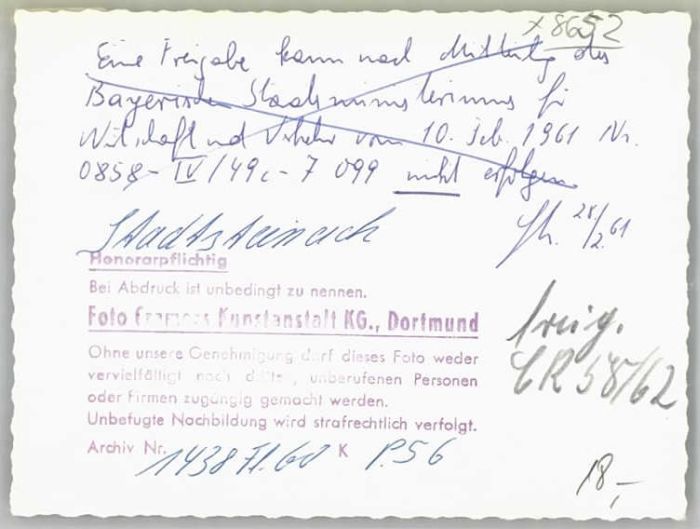 x 8652
Eine Freigabe kann nach Mitteilung des
Bayerischen Staatsministeriums für
Wirtschaft und Verkehr vom 10. Feb. 1961 Nr.
0858-IV/49c-7 099 nicht erfolgen
28/2.61
Stadtsteinach
Honorarpflichtig
Bei Abdruck ist unbedingt zu nennen.
Foto Kunstanstalt KG., Dortmund
Ohne unsere Genehmigung darf dieses Foto weder
vervielfältigt noch dritten, unberufenen Personen
oder Firmen zugängig gemacht werden.
Unbefugte Nachbildung wird strafrechtlich verfolgt.
Archiv Nr. 1438 K P.56
freig.
CR 58/62
18,-